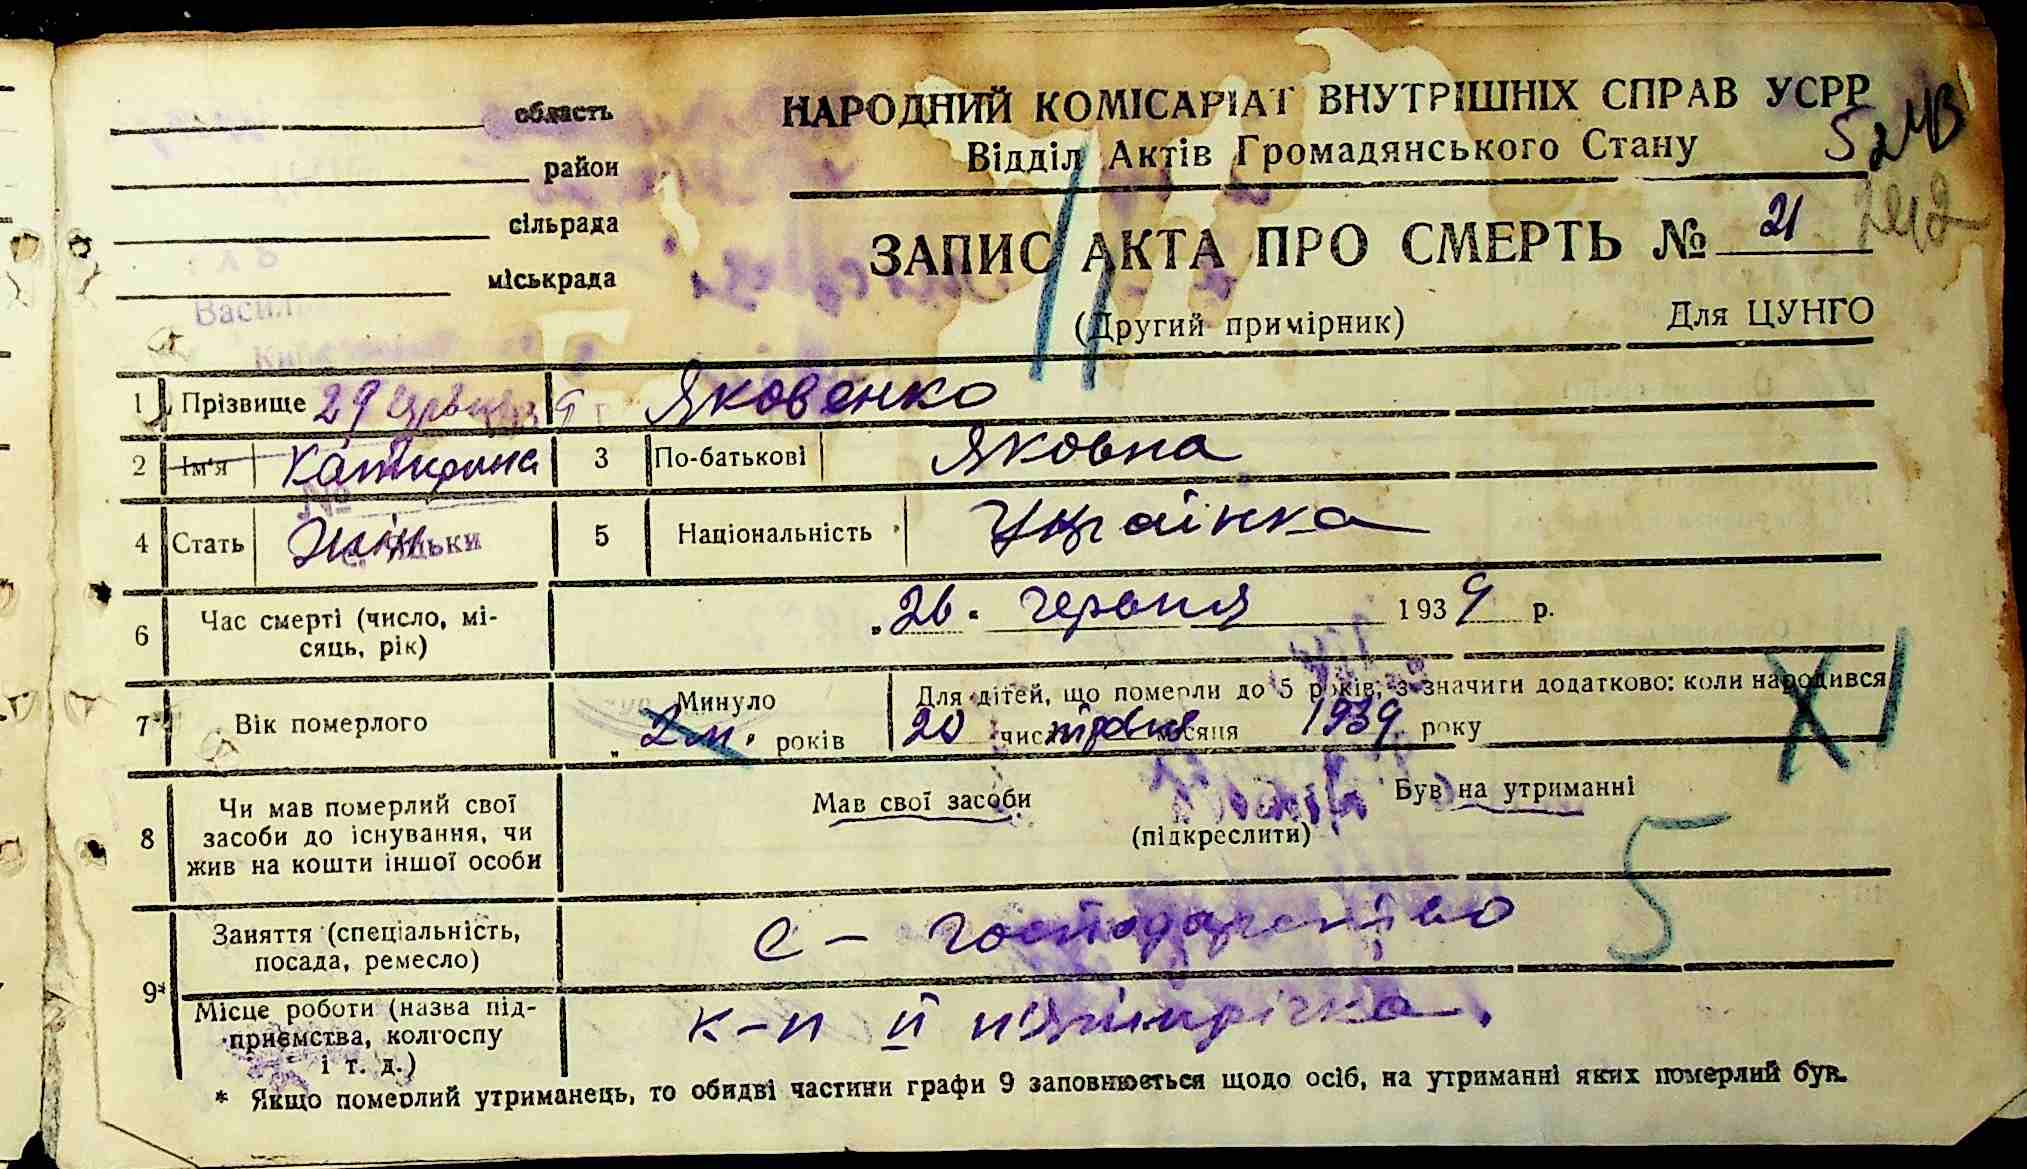 область
район
сільрада
міськрада
НАРОДНИЙ КОМІСАРІАТ ВНУТРІШНІХ СПРАВ УСРР
Відділ Актів Громадянського Стану
52 МВ
ЗАПИС АКТА ПРО СМЕРТЬ № 21
(Другий примірник) Для ЦУНГО
Васил
1 Прізвище 29 червня Яковенко
2 Ім'я Катирина 3 По-батькові Яковна
№
4 Стать Жін 5 Національність Українка
6 Час смерті (число, мі-
сяць, рік)
"26" червня 1939 р.
7 Вік померлого Минуло 2 м. років
Для дітей, що померли до 5 років, зазначити додатково: коли народився
20 числа травня місяця 1939 року
8 Чи мав померлий свої
засоби до існування, чи
жив на кошти іншої особи
Мав свої засоби Був на утриманні
(підкреслити)
5
9* Заняття (спеціальність,
посада, ремесло)
с – господарство
Місце роботи (назва під-
приємства, колгоспу
і т. д.)
к-п II п'ятирічка.
* Якщо померлий утриманець, то обидві частини графи 9 заповнюється щодо осіб, на утриманні яких померлий був.